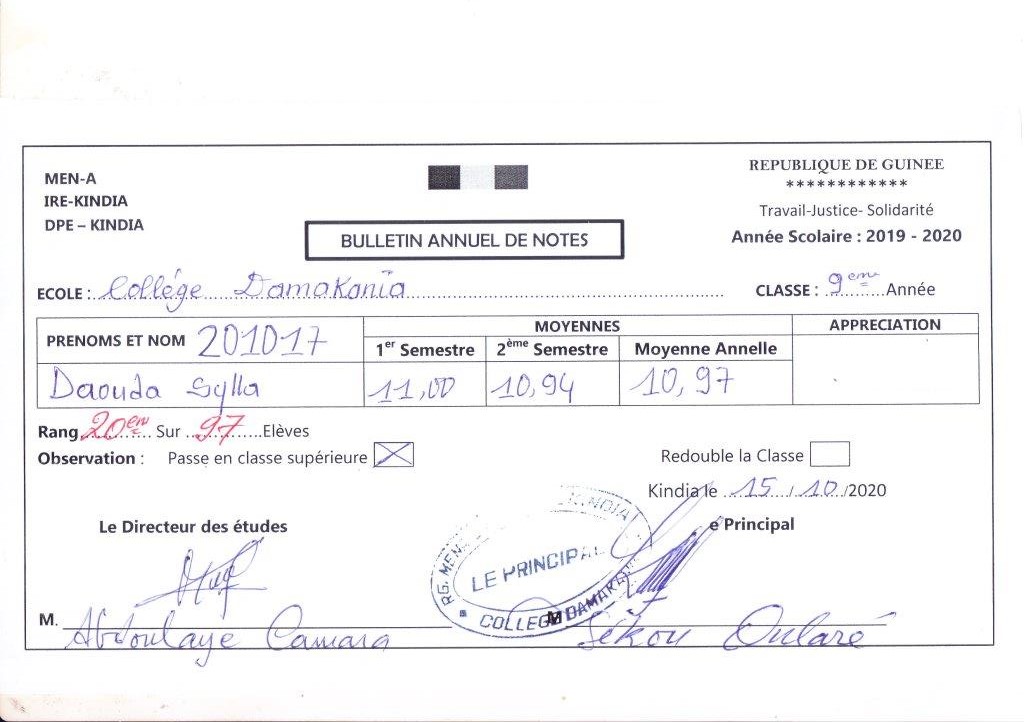 MEN-A
IRE-KINDIA
DPE – KINDIA
REPUBLIQUE DE GUINEE
************
Travail-Justice- Solidarité
Année Scolaire : 2019 - 2020
BULLETIN ANNUEL DE NOTES
ECOLE : Collége Damakania CLASSE : 9eme Année
PRENOMS ET NOM 201017 MOYENNES APPRECIATION
1er Semestre 2ème Semestre Moyenne Annelle
Daouda Sylla 11,00 10,94 10,97
Rang 20em Sur 97 Elèves
Observation : Passe en classe supérieure Redouble la Classe
Kindia le 15/10/2020
Le Directeur des études e Principal
KINDIA
LE PRINCIPAL
M. Abdoulaye Camara M Sékou Oularé